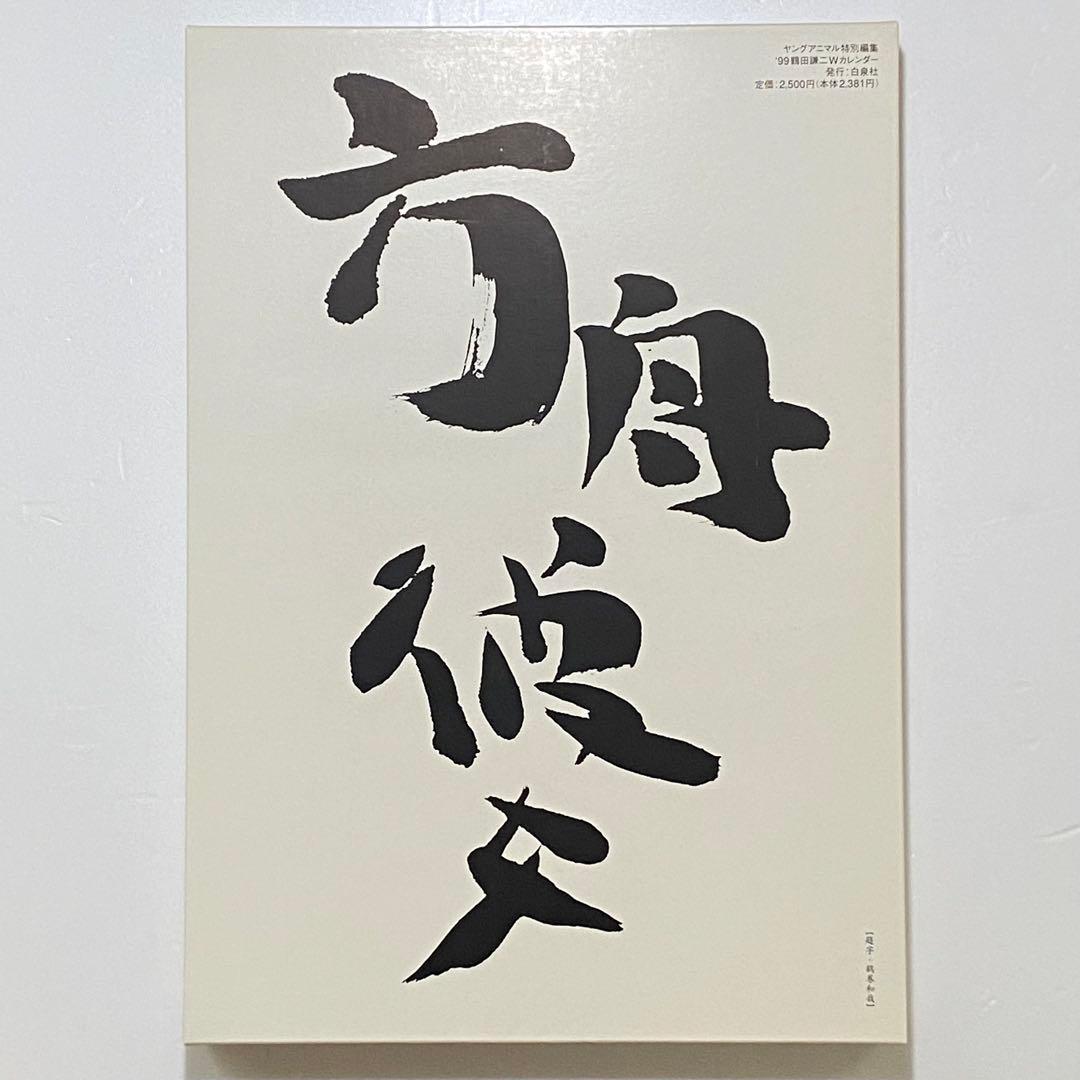 ヤングアニマル特別編集
'99鶴田謙二Wカレンダー
発行:白泉社
定価:2,500円(本体2,381円)
方舟彼女
[題字・鶴巻和哉]